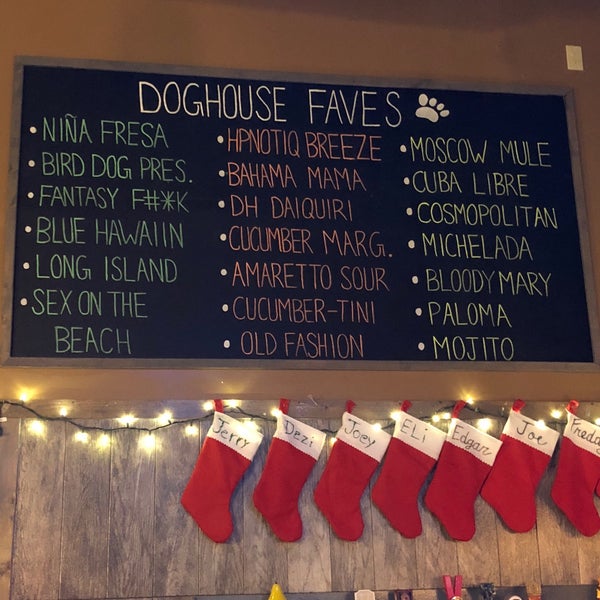 DOGHOUSE FAVES
• NIÑA FRESA
• BIRD DOG PRES.
• FANTASY F#*K
• BLUE HAWAIIN
• LONG ISLAND
• SEX ON THE
BEACH
• HPNOTIQ BREEZE
• BAHAMA MAMA
• DH DAIQUIRI
• CUCUMBER MARG.
• AMARETTO SOUR
• CUCUMBER-TINI
• OLD FASHION
• MOSCOW MULE
• CUBA LIBRE
• COSMOPOLITAN
• MICHELADA
• BLOODY MARY
• PALOMA
• MOJITO
Jerry
Dezi
Joey
ELi
Edgar
Joe
Freddy